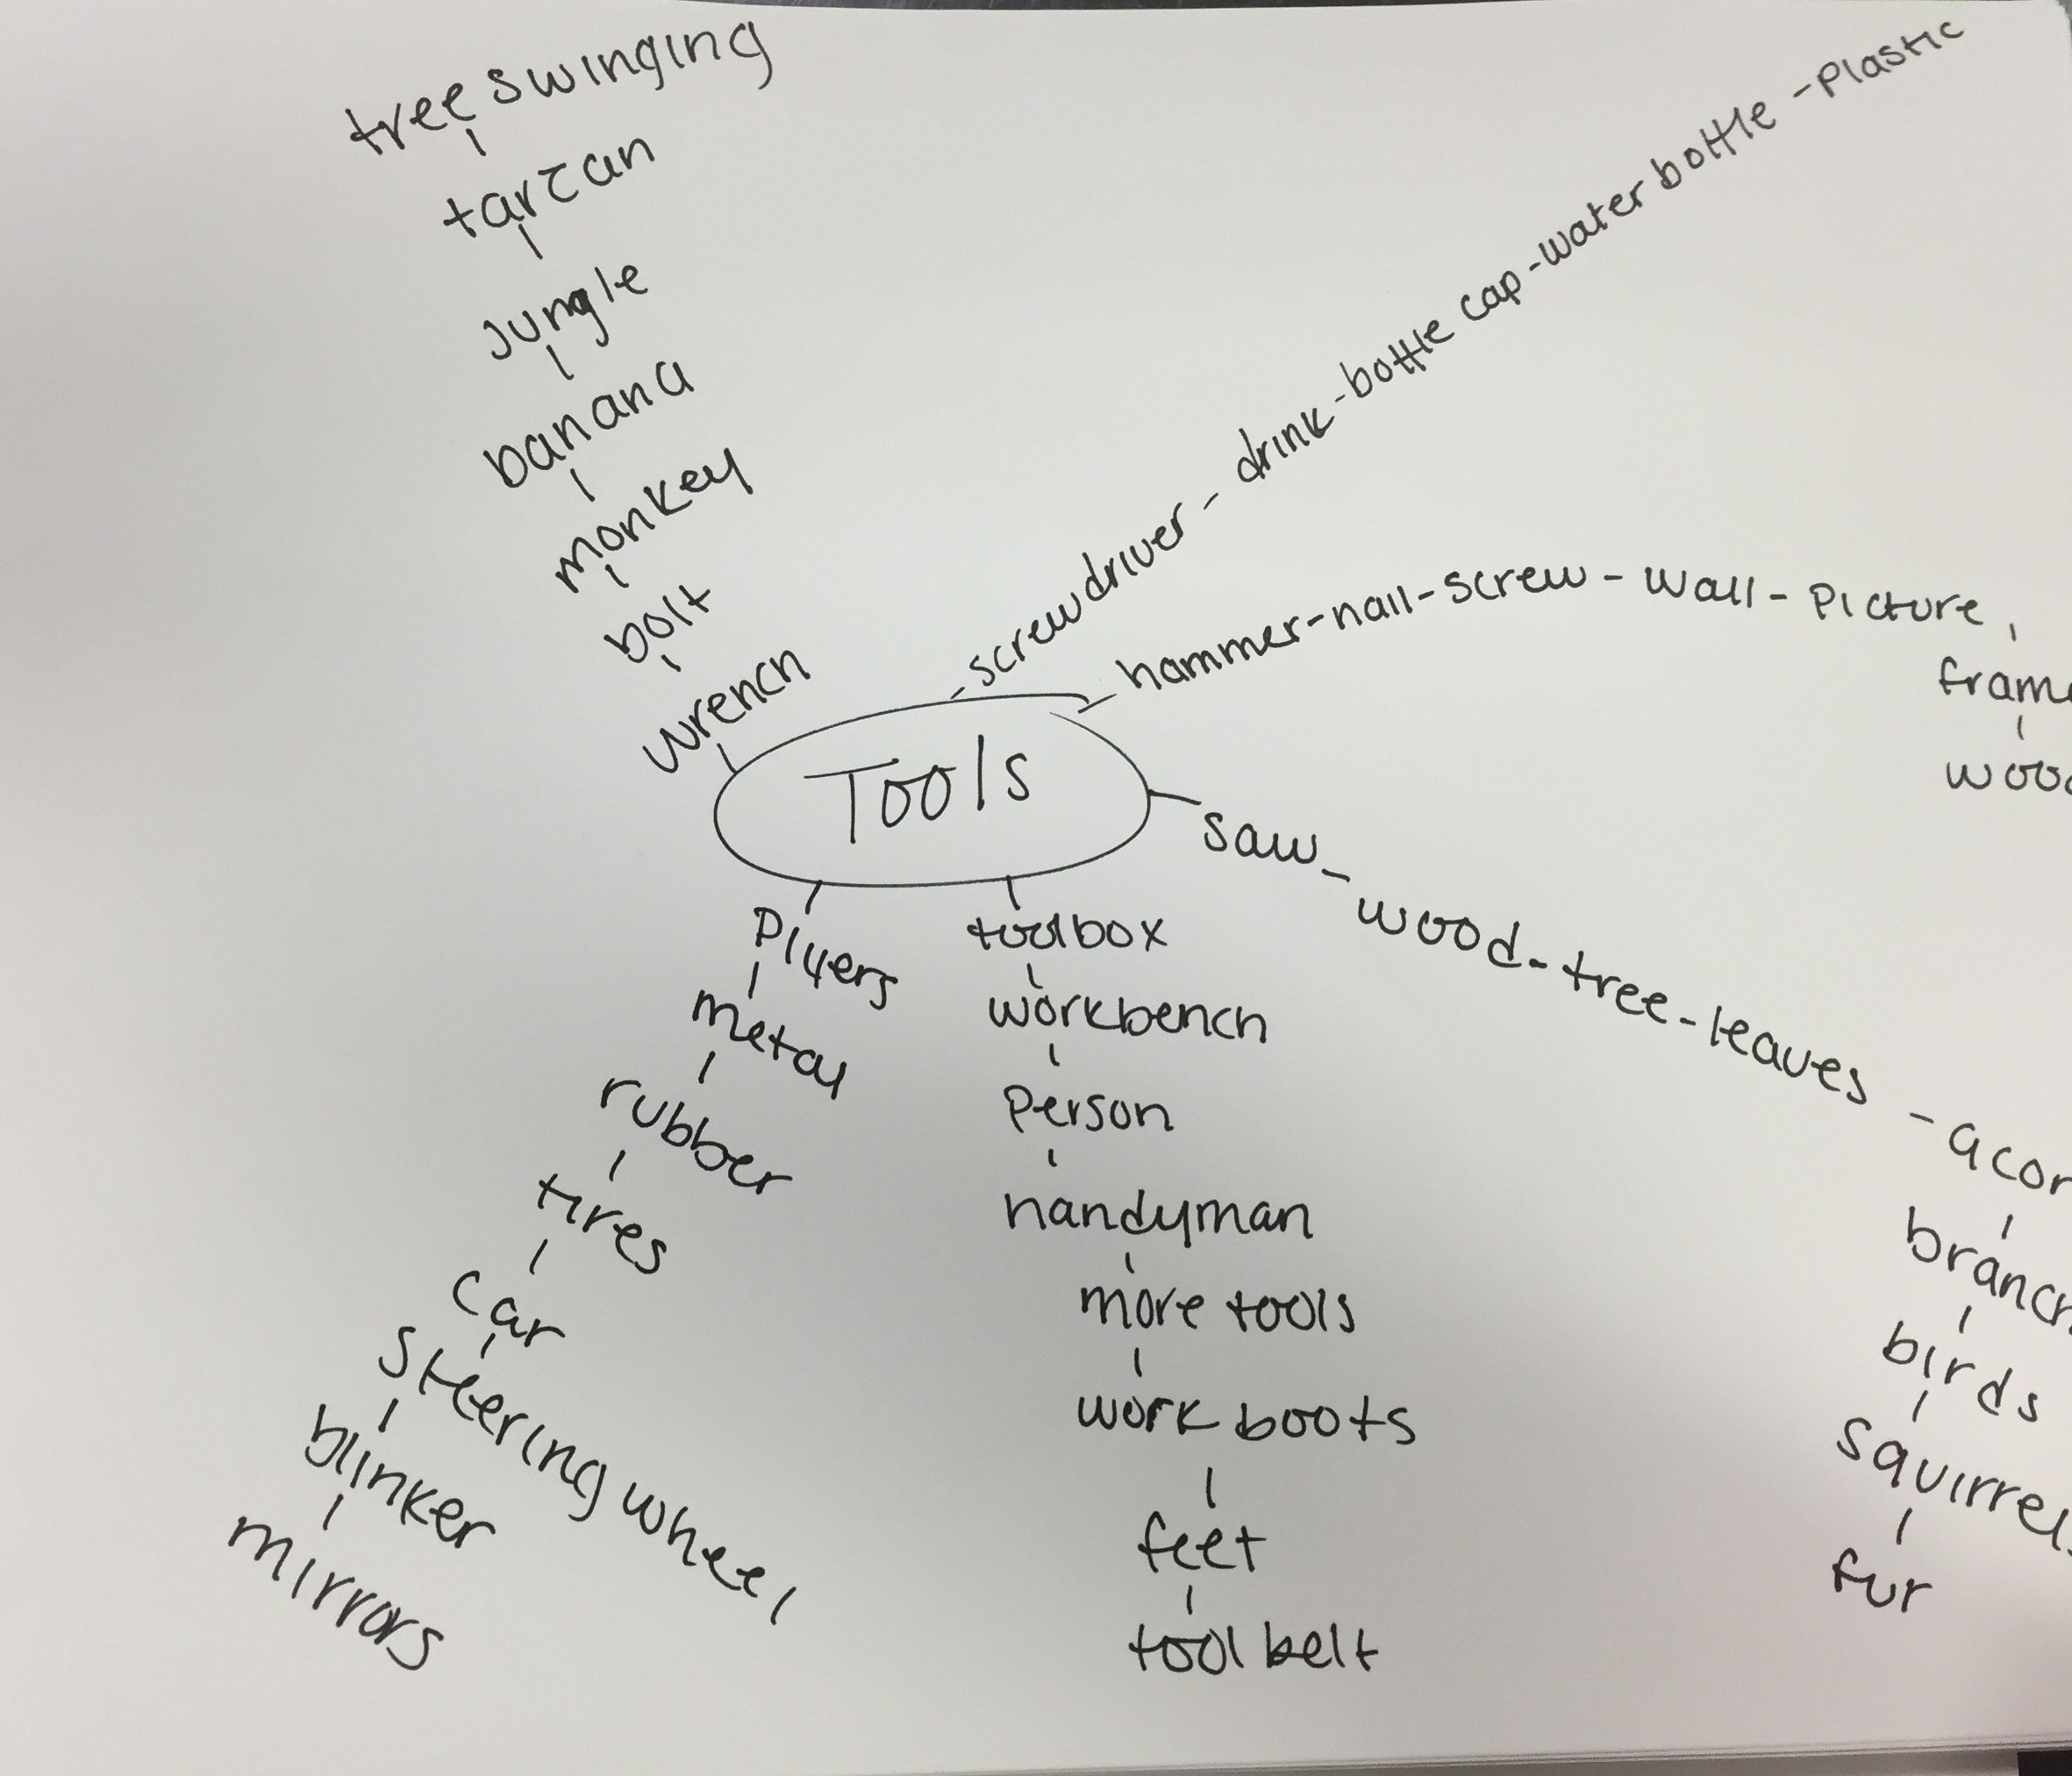 tree swinging
tarzan
Jungle
banana
monkey
bolt
wrench
-screwdriver - drink -bottle cap -water bottle -Plastic
hammer-nail-screw - wall - Picture,
fram
woo
Tools
saw - wood - tree - leaves - acor
branch
birds
squirrel
fur
Plyers
metal
rubber
tires
car
steering wheel
blinker
mirrors
toolbox
workbench
Person
handyman
more tools
work boots
feet
tool belt